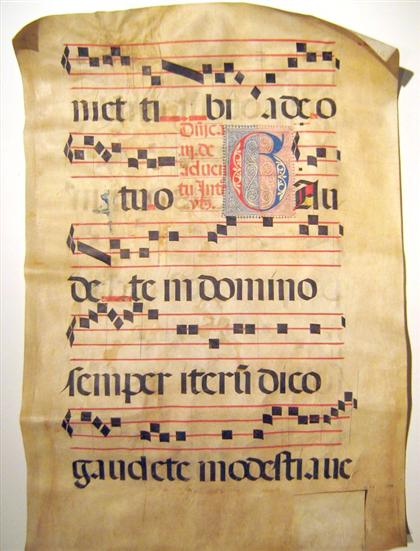 niet ti bi a deo
Dñica
iii. de
aduen
tu Int
tuo GAu
de te in domino
semper iterũ dico
gaudete modestia ue